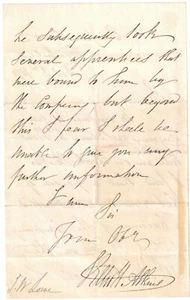 he subsequently took
several apprentices that
were bound to him by
the Company - but beyond
this I fear I shall be
unable to give you any
further information
I am Sir
Your Obt